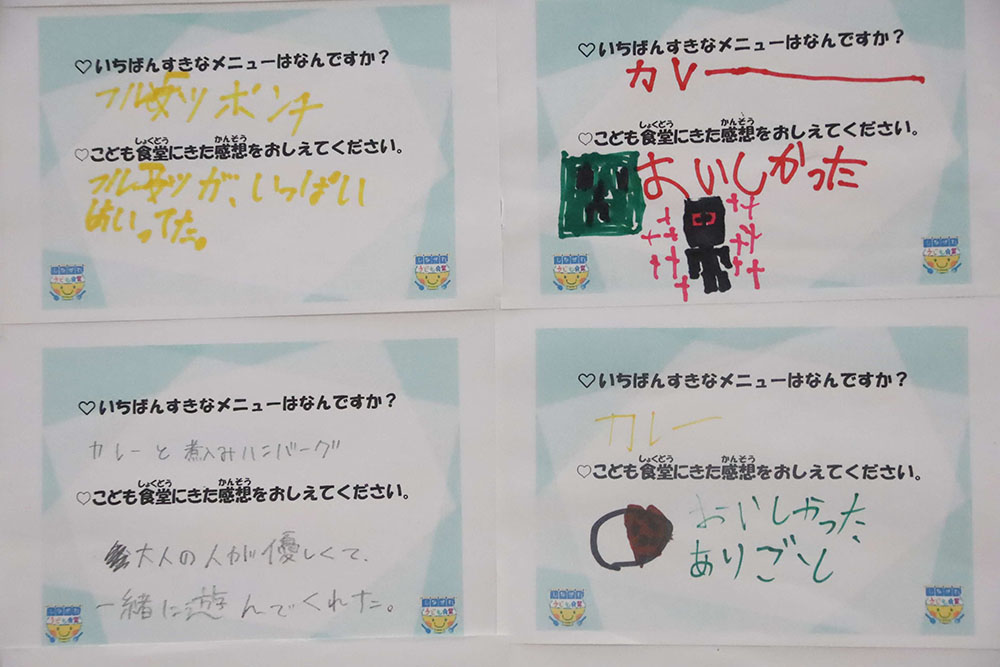 ♡いちばんすきなメニューはなんですか？
フルーツポンチ
♡こども食堂にきた感想をおしえてください。
しょくどう かんそう
フルーツが、いっぱい
はいってた。
♡いちばんすきなメニューはなんですか？
カレー
♡こども食堂にきた感想をおしえてください。
しょくどう かんそう
おいしかった
♡いちばんすきなメニューはなんですか？
カレーと煮込みハンバーグ
♡こども食堂にきた感想をおしえてください。
しょくどう かんそう
大人の人が優しくて、
一緒に遊んでくれた。
♡いちばんすきなメニューはなんですか？
カレー
♡こども食堂にきた感想をおしえてください。
しょくどう かんそう
おいしかった
ありごとし